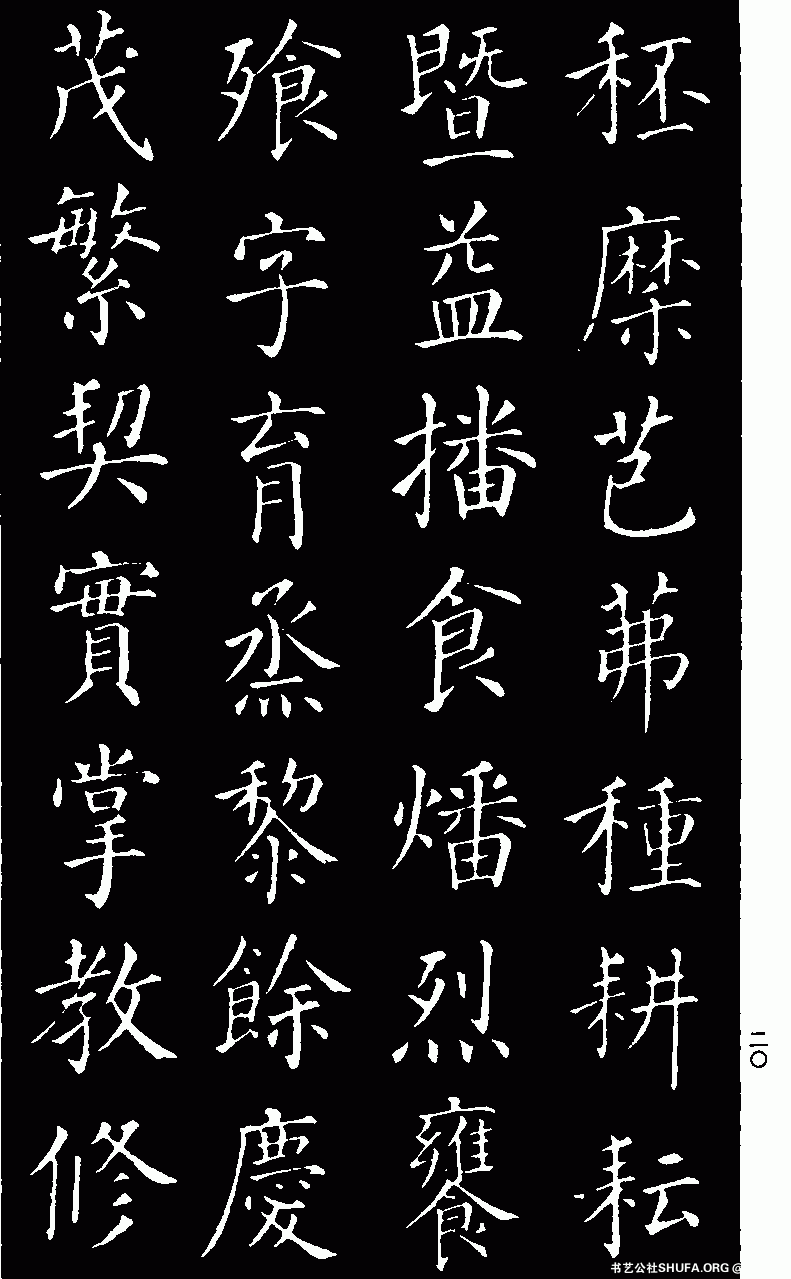 秠穈芑茀種耕耘
暨益播食燔烈饔
飱字育烝黎餘慶
茂繁契實掌教修
二〇
书艺公社SHUFA.ORG @